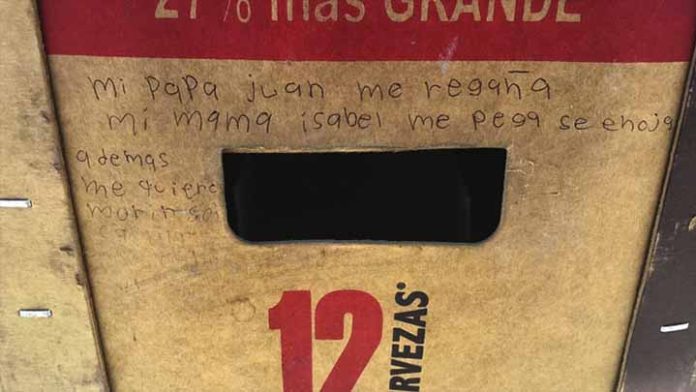 27% más GRANDE
mi papa juan me regaña
mi mama isabel me pega se enoja
ademas
me quiero
morir soi
12
RVEZAS®